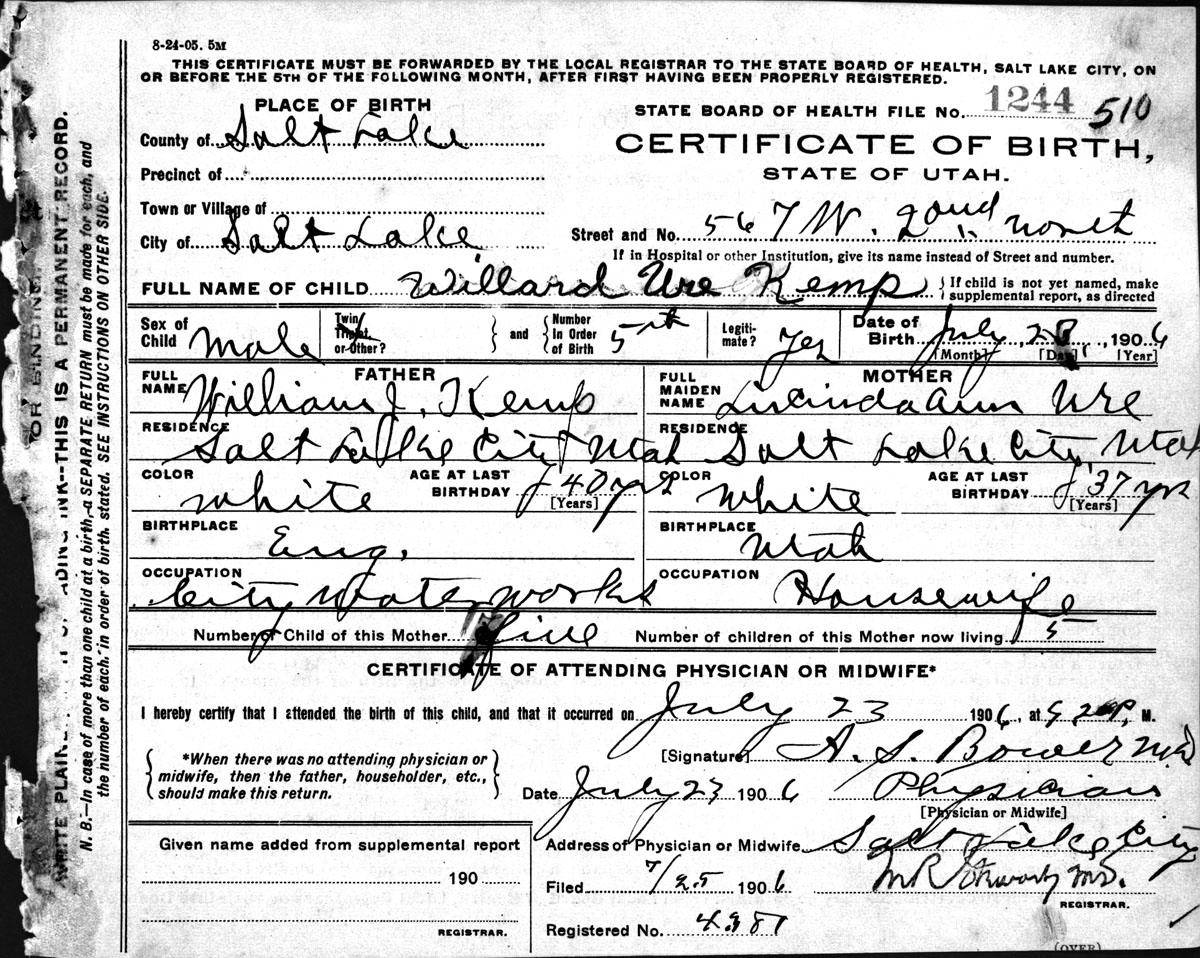 8-24-05. 5M
THIS CERTIFICATE MUST BE FORWARDED BY THE LOCAL REGISTRAR TO THE STATE BOARD OF HEALTH, SALT LAKE CITY, ON
OR BEFORE THE 5TH OF THE FOLLOWING MONTH, AFTER FIRST HAVING BEEN PROPERLY REGISTERED.
PLACE OF BIRTH
STATE BOARD OF HEALTH FILE No. 1244 510
County of Salt Lake
CERTIFICATE OF BIRTH,
STATE OF UTAH.
Precinct of
Town or Village of
City of Salt Lake
Street and No. 567 W. 2nd North
If in Hospital or other Institution, give its name instead of Street and number.
FULL NAME OF CHILD Willard Ure Kemp
If child is not yet named, make
supplemental report, as directed
Sex of Child Male
Twin Triplet or Other?
and
Number in Order of Birth 5th
Legiti-mate? Yes
Date of Birth July, 1906
[Month] [Day] [Year]
FATHER
FULL NAME William J. Kemp
MOTHER
FULL MAIDEN NAME Lucinda Ann Ure
RESIDENCE Salt Lake City Utah
RESIDENCE Salt Lake City, Utah
COLOR White
AGE AT LAST BIRTHDAY 40 yrs
[Years]
COLOR White
AGE AT LAST BIRTHDAY 37 yrs
[Years]
BIRTHPLACE Eng.
BIRTHPLACE Utah
OCCUPATION City Water works
OCCUPATION Housewife
Number of Child of this Mother five
Number of children of this Mother now living 5
CERTIFICATE OF ATTENDING PHYSICIAN OR MIDWIFE*
I hereby certify that I attended the birth of this child, and that it occurred on July 23 1906, at P. M.
*When there was no attending physician or
midwife, then the father, householder, etc.,
should make this return.
[Signature] A. S. Bower MD
Date July 23 1906 Physician
[Physician or Midwife]
Given name added from supplemental report
190
REGISTRAR.
Address of Physician or Midwife Salt Lake City
Filed 7/25 1906 M.D.
REGISTRAR.
Registered No.
(OVER)
OR BINDING.
WRITE PLAINLY ADING INK--THIS IS A PERMANENT RECORD.
N. B.—In case of more than one child at a birth, a SEPARATE RETURN must be made for each, and
the number of each, in order of birth, stated. SEE INSTRUCTIONS ON OTHER SIDE.